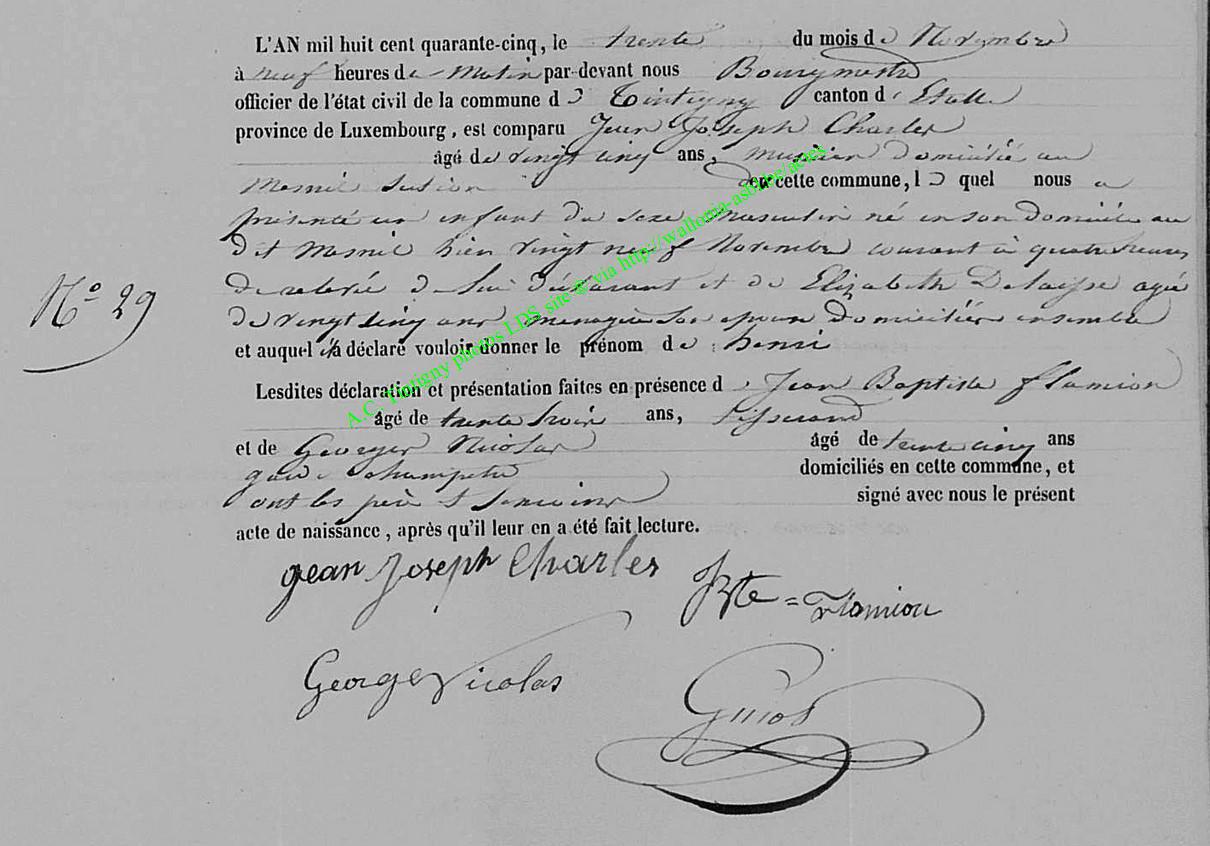 L'AN mil huit cent quarante-cinq, le trente du mois de Novembre
à neuf heures de Matin par-devant nous Bourgmestre
officier de l'état civil de la commune de Tintigny canton d'Etalle
province de Luxembourg, est comparu Jean Joseph Charles
âgé de vingt cinq ans, domicilié au
Mesnil en cette commune, le quel nous a
présenté un enfant du sexe masculin né en son domicile au
dit Mesnil hier vingt neuf Novembre courant à quatre heures
de relevée de lui déclarant et de Elizabeth agée
de vingt cinq ans ménagère son épouse domiciliés ensemble
et auquel il a déclaré vouloir donner le prénom de henri
N° 29
Lesdites déclaration et présentation faites en présence de Jean Baptiste flamion
âgé de trente trois ans, tisserand
et de Georges Nicolas âgé de trente cinq ans
garde champetre domiciliés en cette commune, et
ont les père et temoins signé avec nous le présent
acte de naissance, après qu'il leur en a été fait lecture.
gean Joseph Charles JBte = flamion
George Nicolas
A.C. Tintigny photos LDS site @ via http://wallonia-asbl.be/actes